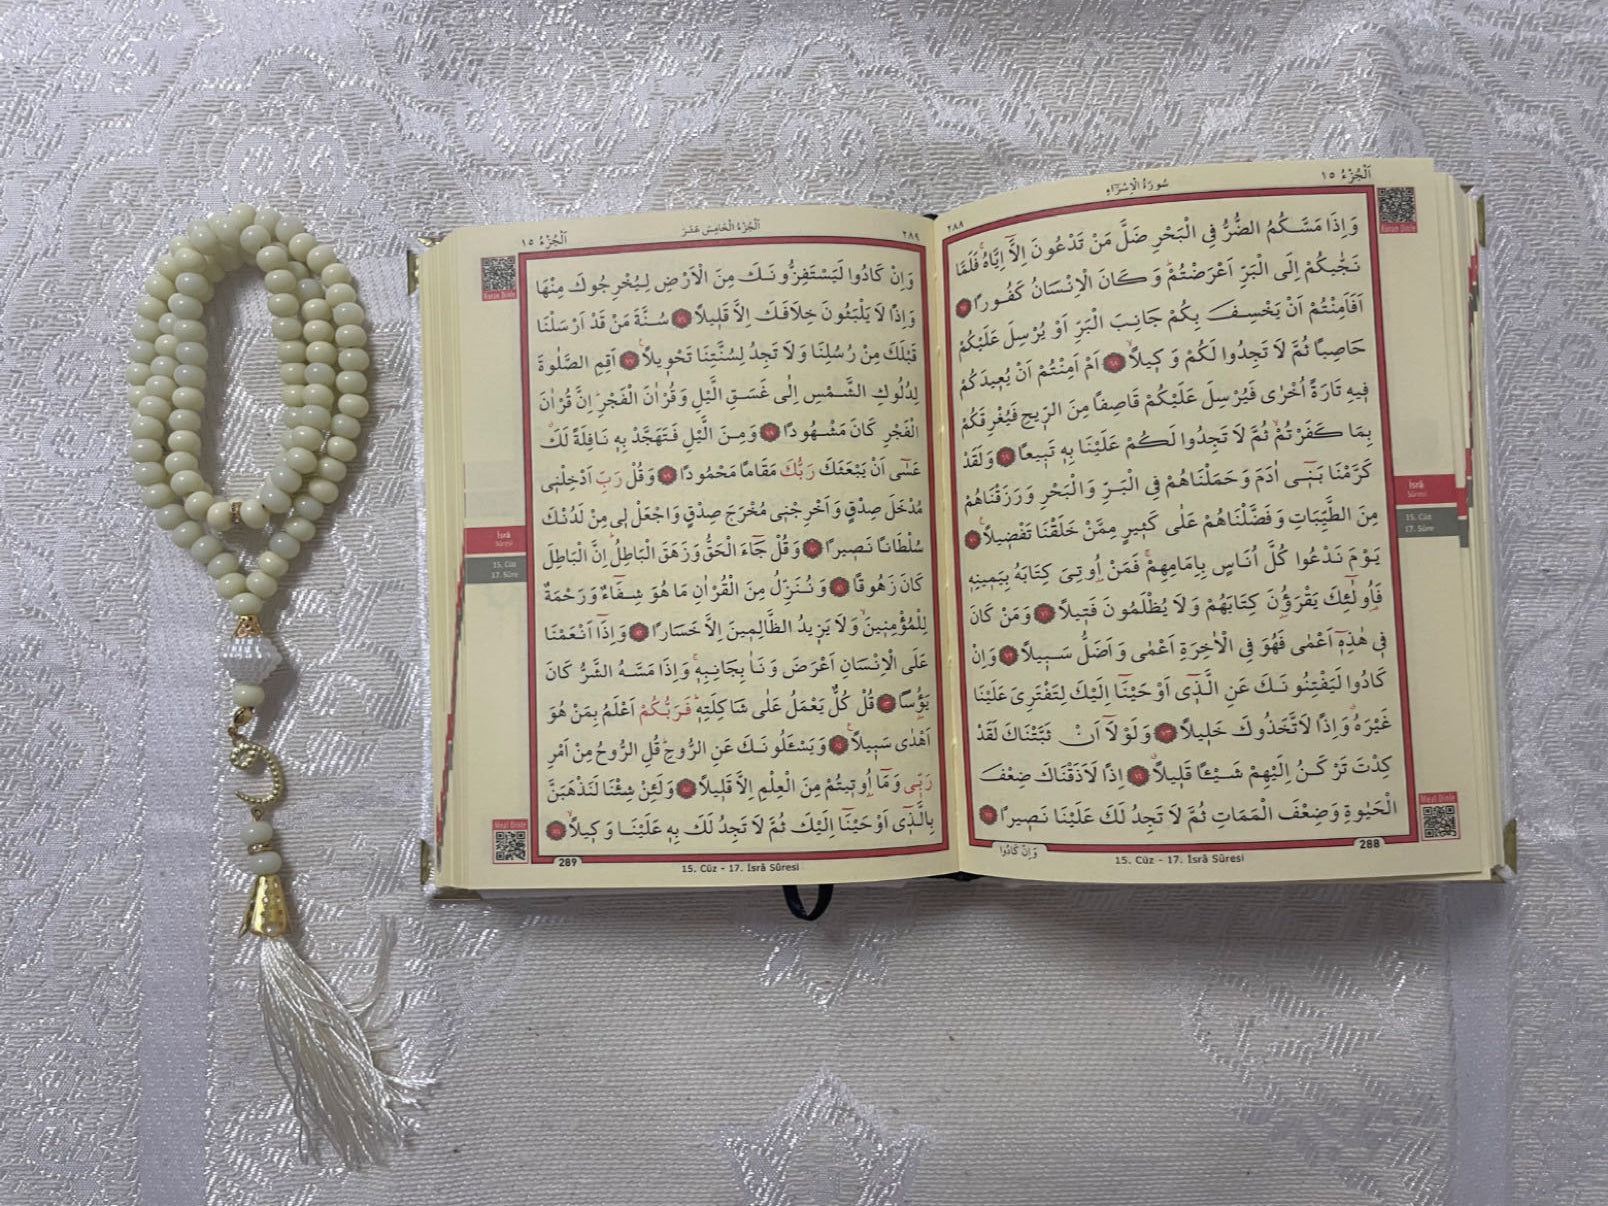 اَلْجُزْءُ ١٥
سُورَةُ الْاِسْرَٓاءِ
٢٨٨
Kuran Dinle
وَاِذَا مَسَّكُمُ الضُّرُّ فِي الْبَحْرِ ضَلَّ مَنْ تَدْعُونَ اِلَّٓا اِيَّاهُۚ فَلَمَّا
نَجّٰيكُمْ اِلَى الْبَرِّ اَعْرَضْتُمْۜ وَكَانَ الْاِنْسَانُ كَفُورًا ﴿٦٧﴾
اَفَاَمِنْتُمْ اَنْ يَخْسِفَ بِكُمْ جَانِبَ الْبَرِّ اَوْ يُرْسِلَ عَلَيْكُمْ
حَاصِبًا ثُمَّ لَا تَجِدُوا لَكُمْ وَكٖيلًاۙ ﴿٦٨﴾ اَمْ اَمِنْتُمْ اَنْ يُعٖيدَكُمْ
فٖيهِ تَارَةً اُخْرٰى فَيُرْسِلَ عَلَيْكُمْ قَاصِفًا مِنَ الرّٖيحِ فَيُغْرِقَكُمْ
بِمَا كَفَرْتُمْۙ ثُمَّ لَا تَجِدُوا لَكُمْ عَلَيْنَا بِهٖ تَبٖيعًا ﴿٦٩﴾ وَلَقَدْ
كَرَّمْنَا بَنٖٓي اٰدَمَ وَحَمَلْنَاهُمْ فِي الْبَرِّ وَالْبَحْرِ وَرَزَقْنَاهُمْ
مِنَ الطَّيِّبَاتِ وَفَضَّلْنَاهُمْ عَلٰى كَثٖيرٍ مِمَّنْ خَلَقْنَا تَفْضٖيلًا۟ ﴿٧٠﴾
يَوْمَ نَدْعُوا كُلَّ اُنَاسٍ بِاِمَامِهِمْۚ فَمَنْ اُو۫تِيَ كِتَابَهُ بِيَمٖينِهٖ
فَاُو۬لٰٓئِكَ يَقْرَؤُ۫نَ كِتَابَهُمْ وَلَا يُظْلَمُونَ فَتٖيلًا ﴿٧١﴾ وَمَنْ كَانَ
فٖي هٰذِهٖٓ اَعْمٰى فَهُوَ فِي الْاٰخِرَةِ اَعْمٰى وَاَضَلُّ سَبٖيلًا ﴿٧٢﴾ وَاِنْ
كَادُوا لَيَفْتِنُونَكَ عَنِ الَّذٖٓي اَوْحَيْنَٓا اِلَيْكَ لِتَفْتَرِيَ عَلَيْنَا
غَيْرَهُۗ وَاِذًا لَاتَّخَذُوكَ خَلٖيلًا ﴿٧٣﴾ وَلَوْلَٓا اَنْ ثَبَّتْنَاكَ لَقَدْ
كِدْتَ تَرْكَنُ اِلَيْهِمْ شَيْـًٔا قَلٖيلًاۗ ﴿٧٤﴾ اِذًا لَاَذَقْنَاكَ ضِعْفَ
الْحَيٰوةِ وَضِعْفَ الْمَمَاتِ ثُمَّ لَا تَجِدُ لَكَ عَلَيْنَا نَصٖيرًا ﴿٧٥﴾
İsrâ
Sûresi
15. Cüz
17. Sûre
Meal Dinle
288
15. Cüz - 17. İsrâ Sûresi
وَاِنْ كَادُوا
٢٨٩
اَلْجُزْءُ الْخَامِسَ عَشَرَ
اَلْجُزْءُ ١٥
Kuran Dinle
وَاِنْ كَادُوا لَيَسْتَفِزُّونَكَ مِنَ الْاَرْضِ لِيُخْرِجُوكَ مِنْهَا
وَاِذًا لَا يَلْبَثُونَ خِلَافَكَ اِلَّا قَلٖيلًا ﴿٧٦﴾ سُنَّةَ مَنْ قَدْ اَرْسَلْنَا
قَبْلَكَ مِنْ رُسُلِنَا وَلَا تَجِدُ لِسُنَّتِنَا تَحْوٖيلًا۟ ﴿٧٧﴾ اَقِمِ الصَّلٰوةَ
لِدُلُوكِ الشَّمْسِ اِلٰى غَسَقِ الَّيْلِ وَقُرْاٰنَ الْفَجْرِۜ اِنَّ قُرْاٰنَ
الْفَجْرِ كَانَ مَشْهُودًا ﴿٧٨﴾ وَمِنَ الَّيْلِ فَتَهَجَّدْ بِهٖ نَافِلَةً لَكَۗ
عَسٰٓى اَنْ يَبْعَثَكَ رَبُّكَ مَقَامًا مَحْمُودًا ﴿٧٩﴾ وَقُلْ رَبِّ اَدْخِلْنٖي
مُدْخَلَ صِدْقٍ وَاَخْرِجْنٖي مُخْرَجَ صِدْقٍ وَاجْعَلْ لٖي مِنْ لَدُنْكَ
سُلْطَانًا نَصٖيرًا ﴿٨٠﴾ وَقُلْ جَٓاءَ الْحَقُّ وَزَهَقَ الْبَاطِلُۜ اِنَّ الْبَاطِلَ
كَانَ زَهُوقًا ﴿٨١﴾ وَنُنَزِّلُ مِنَ الْقُرْاٰنِ مَا هُوَ شِفَٓاءٌ وَرَحْمَةٌ
لِلْمُؤْمِنٖينَۙ وَلَا يَزٖيدُ الظَّالِمٖينَ اِلَّا خَسَارًا ﴿٨٢﴾ وَاِذَٓا اَنْعَمْنَا
عَلَى الْاِنْسَانِ اَعْرَضَ وَنَاٰ بِجَانِبِهٖۚ وَاِذَا مَسَّهُ الشَّرُّ كَانَ
يَؤُ۫سًا ﴿٨٣﴾ قُلْ كُلٌّ يَعْمَلُ عَلٰى شَاكِلَتِهٖۜ فَرَبُّكُمْ اَعْلَمُ بِمَنْ هُوَ
اَهْدٰى سَبٖيلًا۟ ﴿٨٤﴾ وَيَسْـَٔلُونَكَ عَنِ الرُّوحِۜ قُلِ الرُّوحُ مِنْ اَمْرِ
رَبّٖي وَمَٓا اُو۫تٖيتُمْ مِنَ الْعِلْمِ اِلَّا قَلٖيلًا ﴿٨٥﴾ وَلَئِنْ شِئْنَا لَنَذْهَبَنَّ
بِالَّذٖٓي اَوْحَيْنَٓا اِلَيْكَ ثُمَّ لَا تَجِدُ لَكَ بِهٖ عَلَيْنَا وَكٖيلًاۙ ﴿٨٦﴾
İsrâ
Sûresi
15. Cüz
17. Sûre
Meal Dinle
289
15. Cüz - 17. İsrâ Sûresi